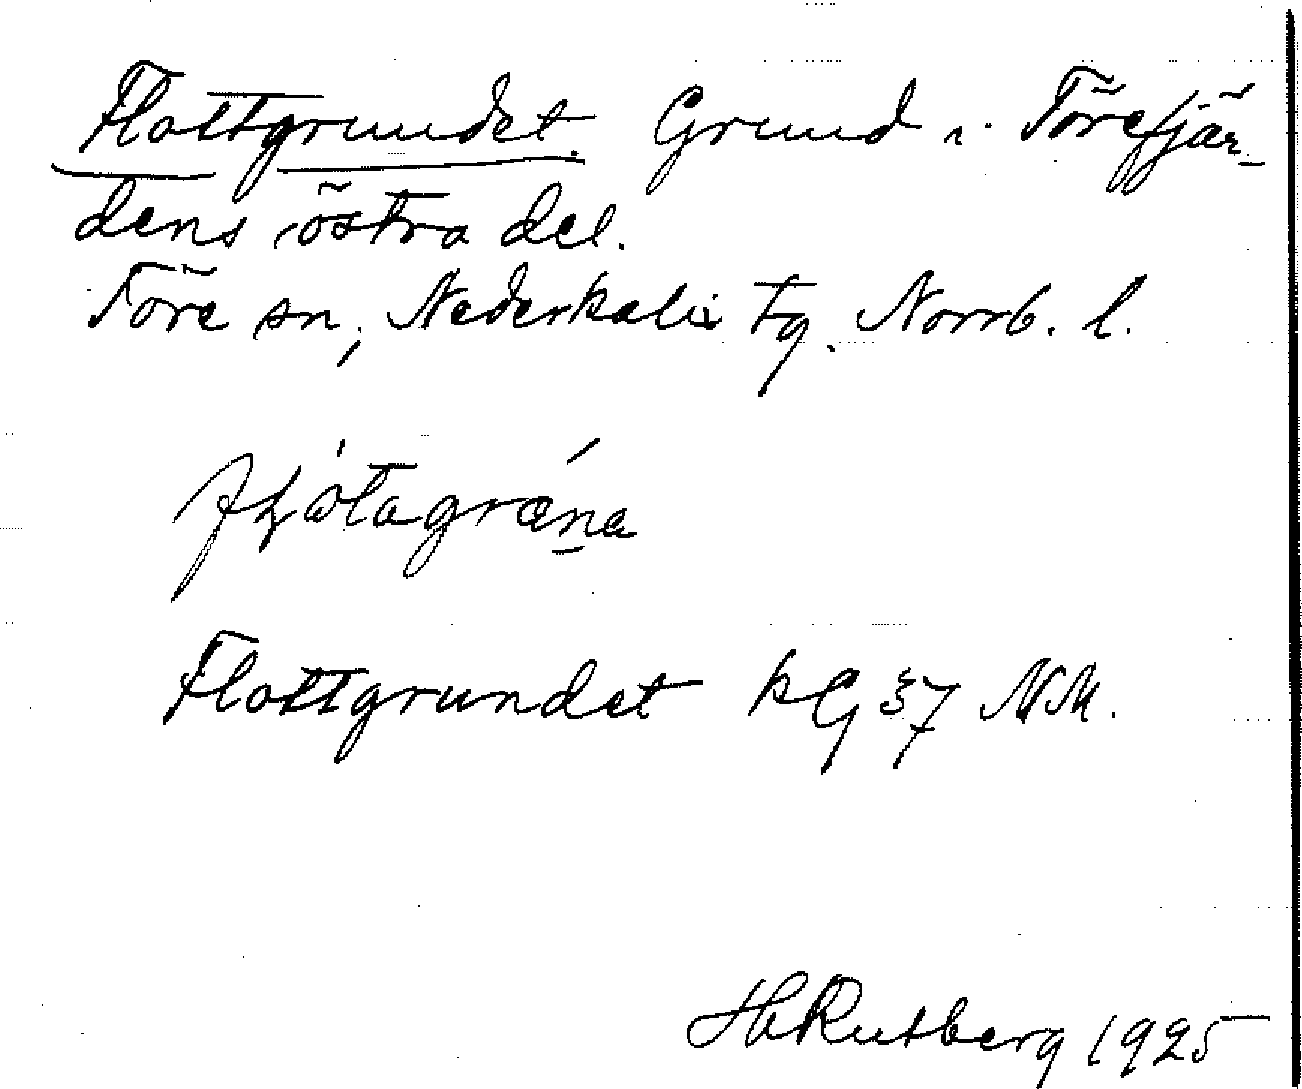 Flottgrundet. Grund i Törefjär-
dens östra del.
Töre sn, Nederkalix tg. Norrb. l.
Flottgrundet kG 37 NM.
H Rutberg 1925